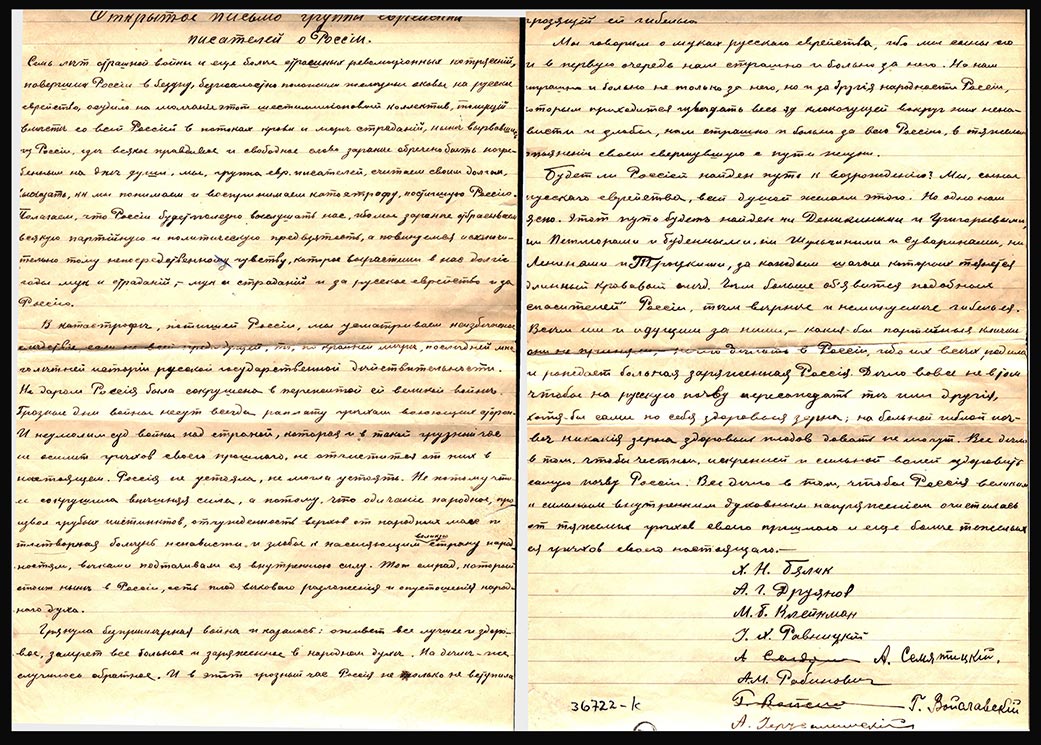 Открытое письмо группы еврейских
писателей о Россіи.
Семь лѣт страшной войны и еще болѣе страшных революціонных потрясеній,
повергших Россію в бездну, безжалостно положили желѣзныя оковы на русское
еврейство, осудило на молчаніе этот шестимилліонный коллектив, тонущій
вмѣстѣ со всей Россіей в потоках крови и морѣ страданій, нынѣ вырвавшись
из Россіи, гдѣ всякое правдивое и свободное слово заранѣе обречено быть погре-
бенным на днѣ души, мы, группа евр. писателей, считаем своим долгом
высказать, как мы понимаем и воспринимаем катастрофу, постигшую Россію.
Полагаем, что Россіи будет полезно выслушать нас, ибо мы заранѣе отбрасываем
всякую партійную и политическую предвзятость, а повинуемся исключи-
тельно тому непосредственному чувству, которое вырастили в нас долгіе
годы мук и страданій, – мук и страданій и за русское еврейство и за
Россію.
В катастрофѣ, постигшей Россію, мы усматриваем неизбѣжное
слѣдствіе если не всей предыдущей, то, по крайней мѣрѣ, послѣдней мно-
голѣтней исторіи русской государственной дѣйствительности.
Не даром Россія была сокрушена в перипетіи ей великой войны.
Грозные дни войны несут всегда расплату грѣхам воюющих сторон.
И неумолим суд войны над страной, которая и в такой грузный час
не осилит грѣхов своего прошлаго, не отчистится от них в
настоящем. Россія не устояла, не могла устоять. Не потому что
ее сокрушила внѣшняя сила, а потому, что одичаніе народное, про-
извол грубых инстинктов, отчужденность верхов от народных масс и
тлетворная болѣзнь ненависти и злобы к населяющим великую страну народ-
ностям, вѣками подтачивали ея внутреннюю силу. Тот смрад, который
стоит нынѣ в Россіи, есть плод вѣкового разложенія и опустошенія народ-
наго духа.
Грянула безпримѣрная война и казалось: оживет все лучшее и здоро-
вое, замрет все больное и зараженное в народном духѣ. На дѣлѣ-же
случилось обратное. И в этот грозный час Россія не только не вступила
грозящій ей гибелью.
Мы говорим о муках русскаго еврейства, ибо мы сыны его
и в первую очередь нам страшно и больно за него. Но нам
страшно и больно не только за него, но и за другія народности Россіи,
которым приходится извѣдать весь яд клокочущей вокруг них нена-
висти и злобы, нам страшно и больно за всю Россію, в тяжелом
опьяненіи своем свернувшую с пути жизни.
Будет ли Россіей найден путь к возрожденію? Мы, сыны
русскаго еврейства, всей душой желали этого. Но одно нам
ясно. Этот путь будет найден ни Деникиными и Григорьевыми,
ни Петлюрами и Буденными, ни Шульгиными и Сувориными, ни
Лениными и Троцкими, за каждым шагом которых тянется
длинный кровавый слѣд. Чѣм больше объявится подобных
"спасителей" Россіи, тѣм вѣрнѣе и неминуемѣе гибель ея.
Всѣм им и идущим за ними, – какія-бы партійныя клички
они не приняли, нечего дѣлать в Россіи, ибо их всѣх родила
и рождает больная зараженная Россія. Дѣло вовсе не в том
чтобы на русскую почву пересаждать тѣ или другія,
хотя-бы сами по себѣ здоровыя зерна; на больной гиблой поч-
вѣ никакія зерна здоровых плодов давать не могут. Все дѣло
в том, чтобы честной, искренней и сильной волей оздоровить
самую почву Россіи. Все дѣло в том, чтобы Россія великим
и сильным внутренним духовным напряженіем очистилась
от тяжелых грѣхов своего прошлаго и еще болѣе тяжелых
ея грѣхов своего настоящаго.—
Х. Н. Бялик
А. І. Друянов
М. Б. Клейнман
І. Х. Равницкій
А. Семятицкій.
А. М. Рабинович
Г. Войславскій
36722-k